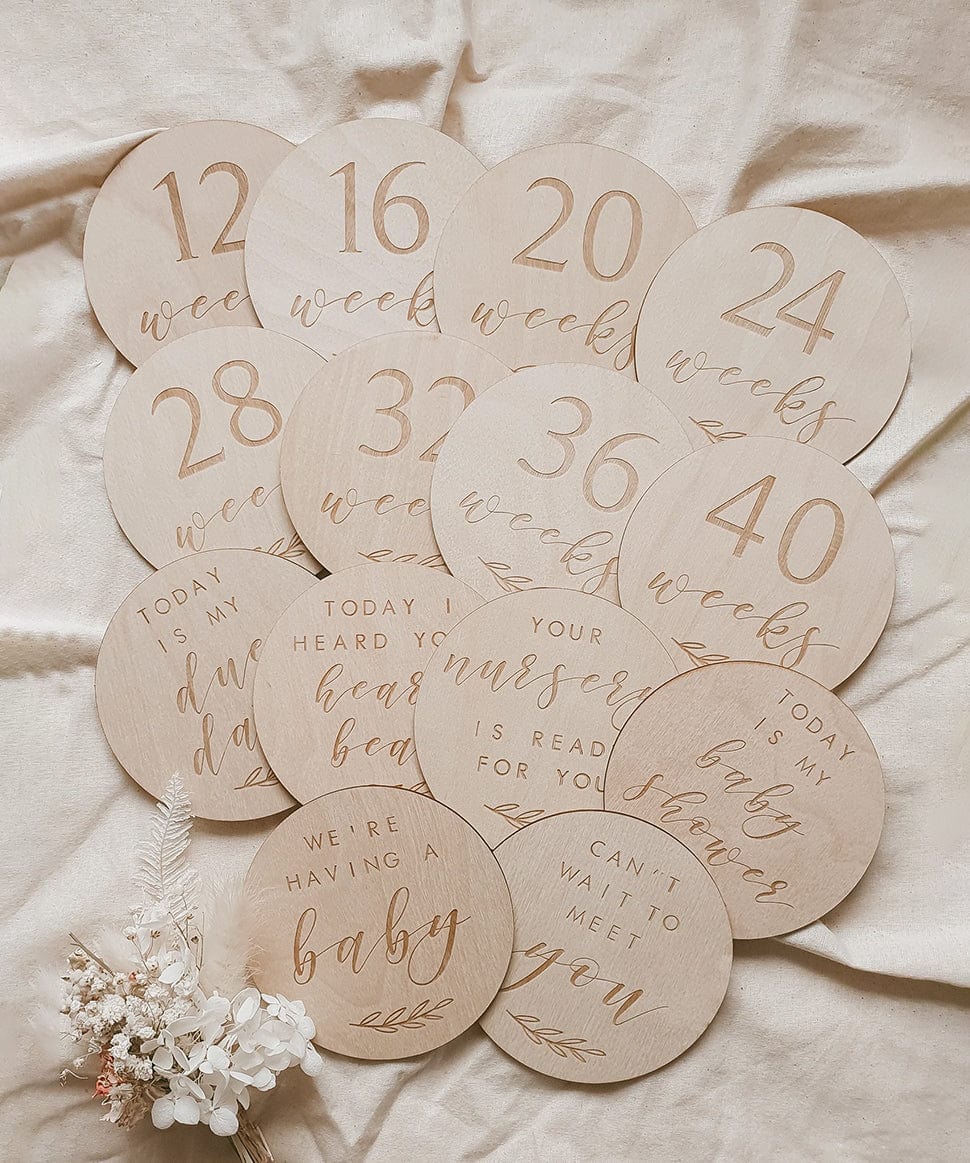 12
wee
16
week
20
weeks
24
weeks
28
wee
32
wee
36
weeks
40
weeks
TODAY
IS MY
due
da
TODAY I
HEARD YO
hear
bea
YOUR
nursery
IS READ
FOR YOU
TODAY
IS MY
baby
shower
WE'RE
HAVING A
baby
CAN"T
WAIT TO
MEET
you